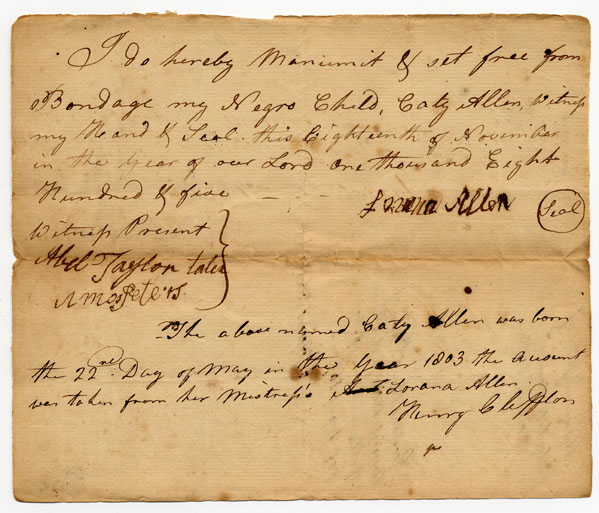 I do hereby Manumit & set free from
Bondage my Negro Child, Caty Allen, Witness
my Hand & Seal this Eighteenth of November
in the Year of our Lord One thousand Eight
Hundred & five Allen Seal
Witness Present
Abel Taylor
Amos Peters
The above named Caty Allen was born
the 22nd Day of May in the Year 1803 the Account
was taken from her Mistress's Lorana Allen
Henry Cliffton